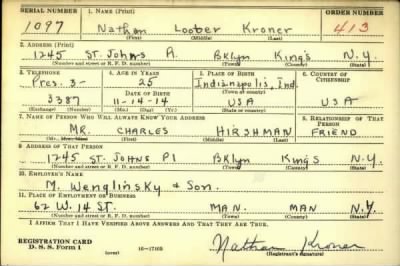 SERIAL NUMBER 1. NAME (Print) ORDER NUMBER
1097 Nathan Loober Kroner 413
(First) (Middle) (Last)
2. ADDRESS (Print)
1245 ST. Johns Pl. BKLyn KINGS N.Y.
(Number and street or R. F. D. number) (Town) (County) (State)
3. TELEPHONE 4. AGE IN YEARS 5. PLACE OF BIRTH 6. COUNTRY OF CITIZENSHIP
Pres. 3- 25 Indianapolis, Ind.
DATE OF BIRTH (Town or county)
3387 11-14-14 USA USA
(Exchange) (Number) (Mo.) (Day) (Yr.) (State or country)
7. NAME OF PERSON WHO WILL ALWAYS KNOW YOUR ADDRESS 8. RELATIONSHIP OF THAT PERSON
MR. CHARLES HIRSHMAN FRIEND
(Mr., Mrs., Miss) (First) (Middle) (Last)
9. ADDRESS OF THAT PERSON
1245 ST. JOHNS Pl BKLyn KINGS N.Y.
(Number and street or R. F. D. number) (Town) (County) (State)
10. EMPLOYER'S NAME
M. Wenglinsky & Son.
11. PLACE OF EMPLOYMENT OR BUSINESS
62 W. 14 ST. MAN. MAN N.Y.
(Number and street or R. F. D. number) (Town) (County) (State)
I AFFIRM THAT I HAVE VERIFIED ABOVE ANSWERS AND THAT THEY ARE TRUE.
REGISTRATION CARD
D. S. S. Form 1 (over) 16-17105 Nathan Kroner
(Registrant's signature)